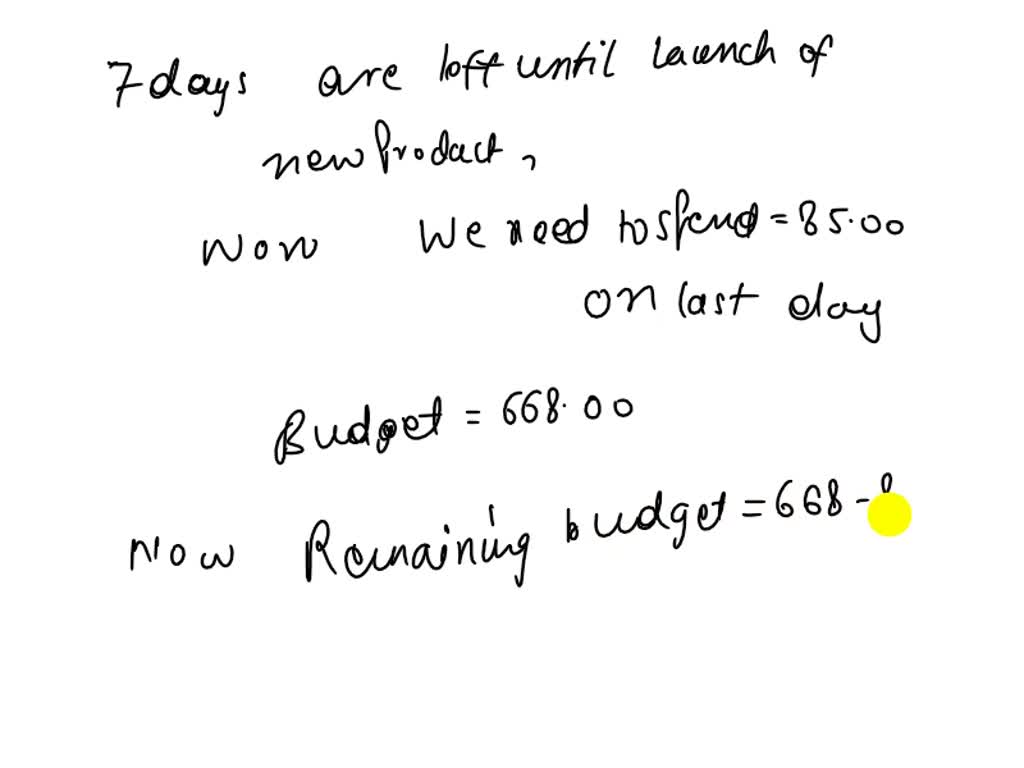 7 days are left until launch of
new Product,
Now We need to spend = 85.00
on last day
Budget = 668.00
Now Remaining budget = 668 -